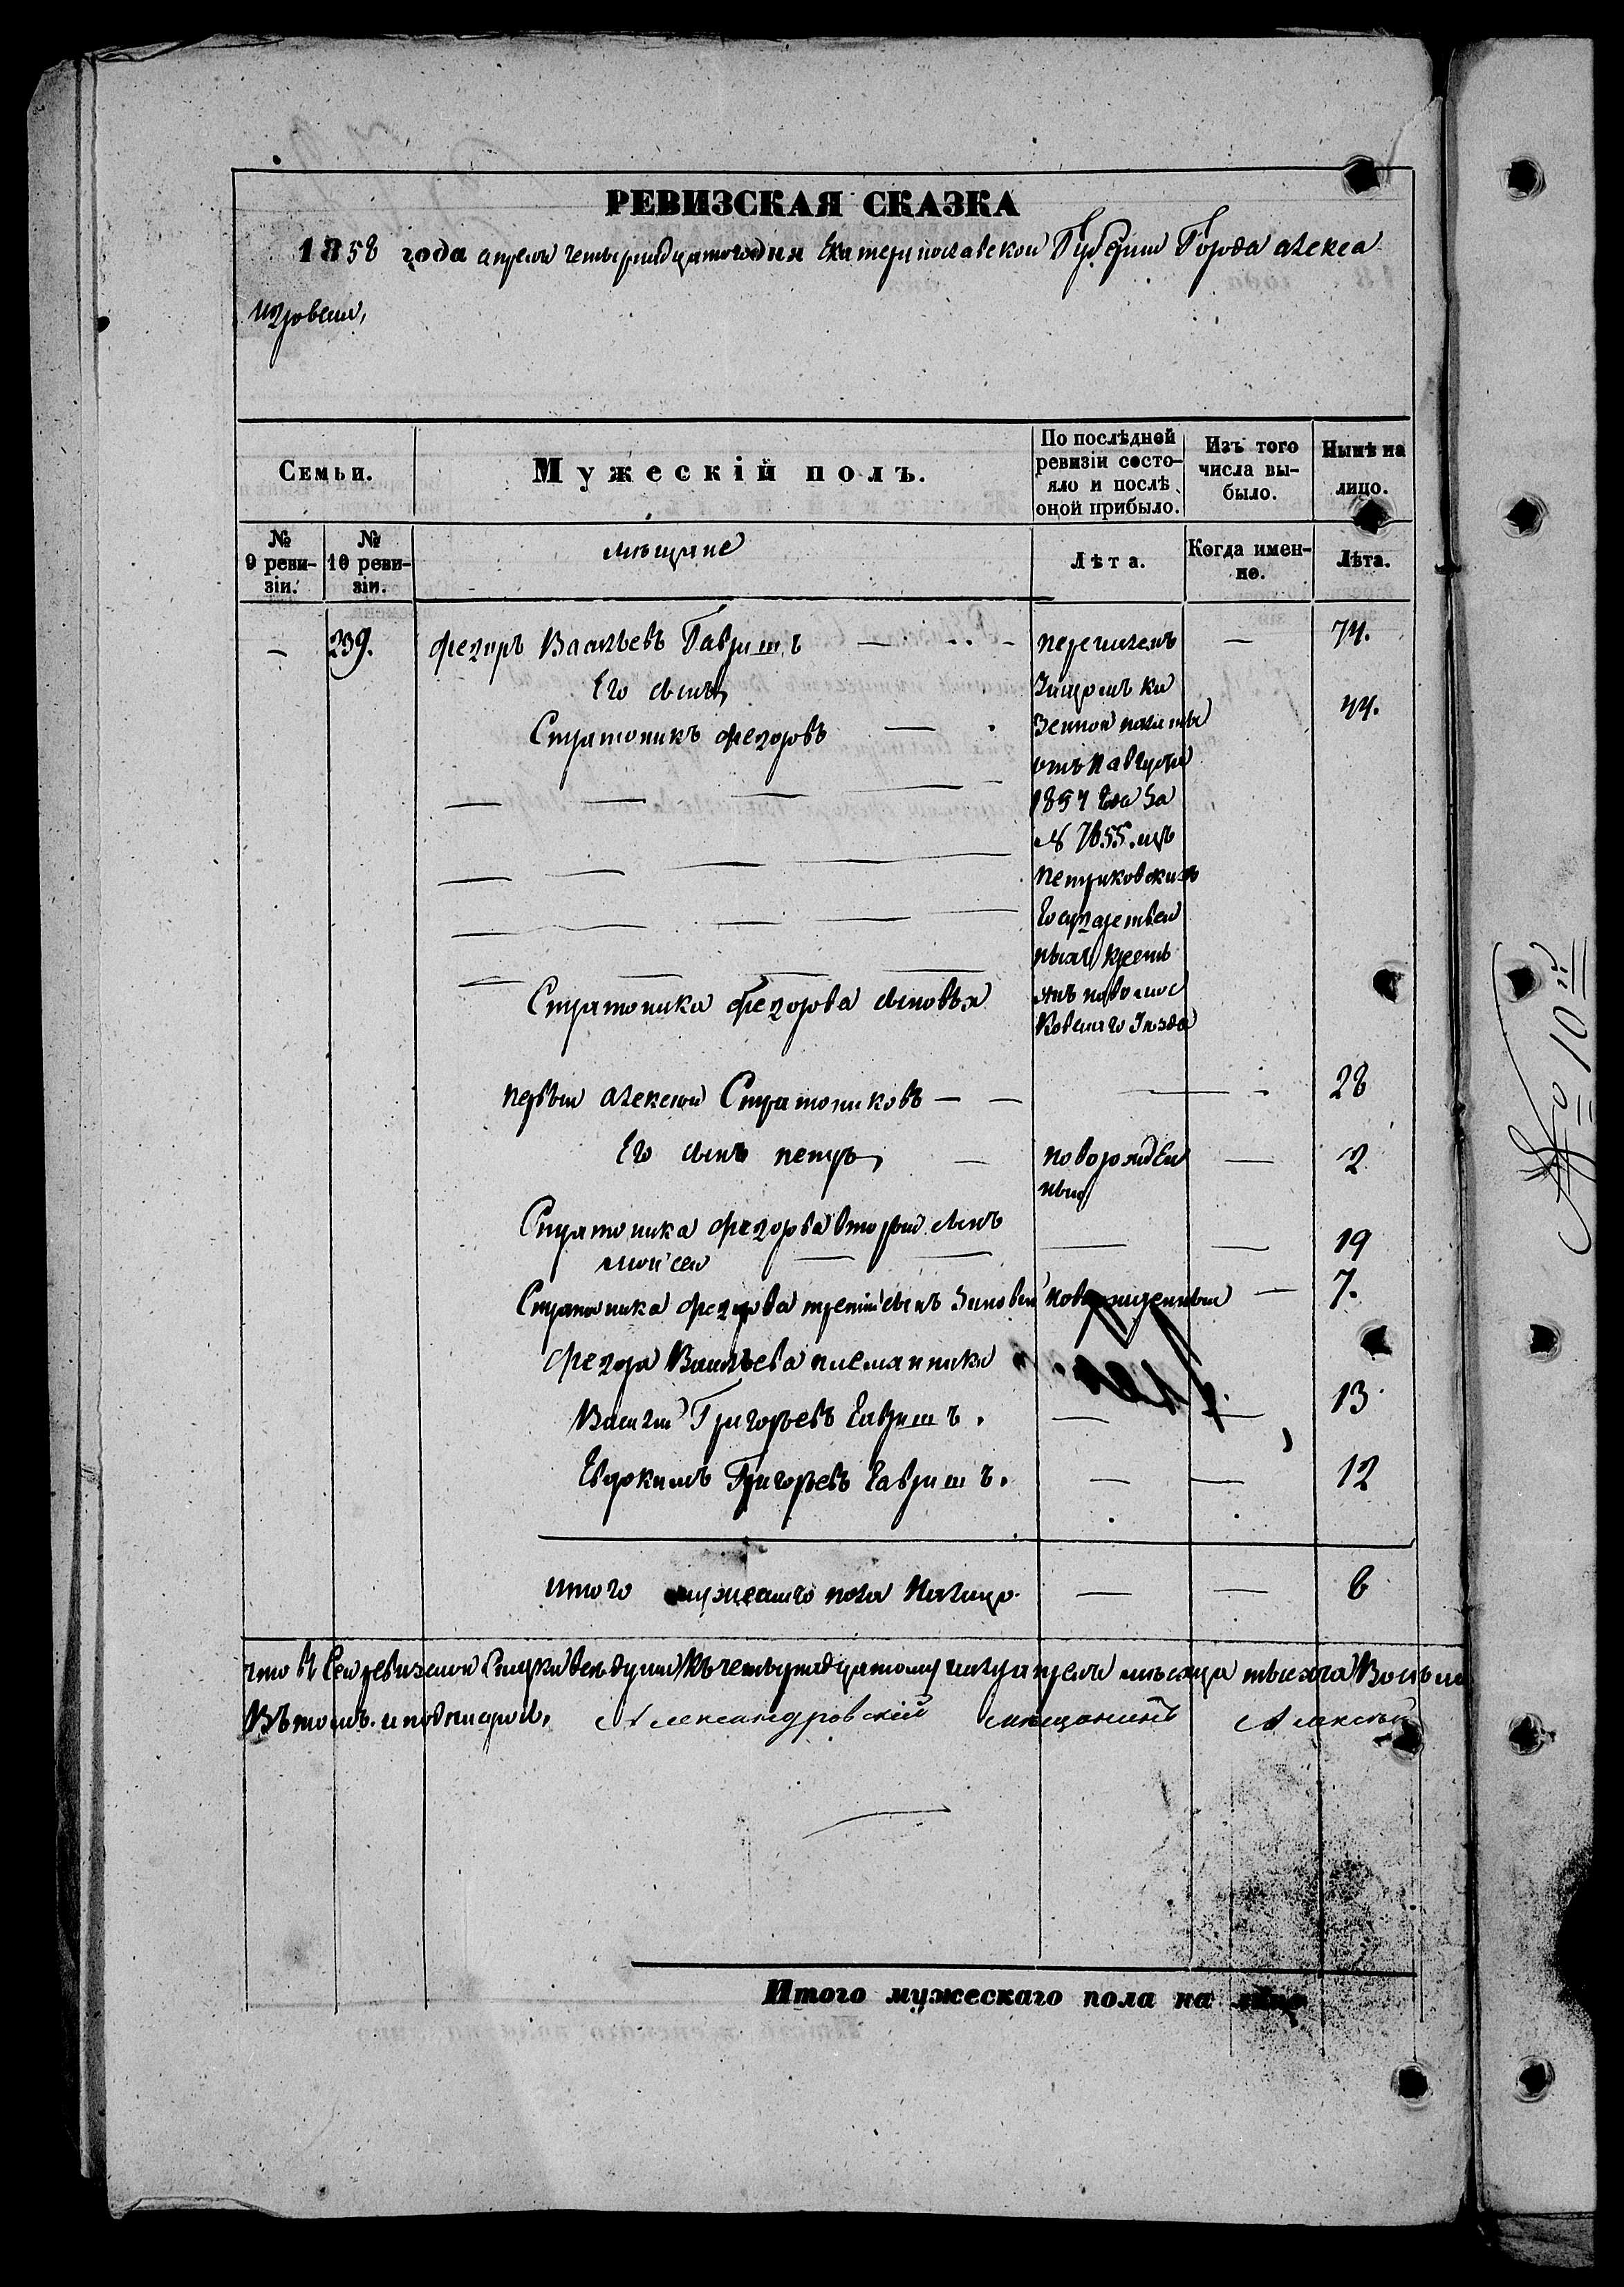 РЕВИЗСКАЯ СКАЗКА
1858 года апреля четырнадцатого дня Екатеринославской Губернии Города алекса
ндровска,
Семьи.
Мужескій полъ.
По послѣдней ревизіи состо-яло и послѣ оной прибыло.
Изъ того числа вы-было.
Нынѣ на лицо.
№ 9 реви-зіи.
№ 10 реви-зіи.
мѣщане
Лѣта.
Когда имен-но.
Лѣта.
— 239. федоръ Васильевъ Гавришъ — перечисленъ — 74.
Его сынъ
Стратоникъ федоровъ — 44.
зенной палаты
отъ августа
1857 года за
№ 7655. изъ
Петриковскихъ
государствен
ныхъ кресть
янъ новомос
ковскаго уезда
Стратоника федорова сыновья
первый алексей Стратониковъ — — 28
Его сынъ петръ — новорожден — 2
ный
Стратоника федорова вторый сынъ
моисей — — 19
Стратоника федорова третій сынъ Зиновий новорожденный — 7.
федора Васильева племянники
Василий Григорьевъ Гавришъ. — — 13
Евдокимъ Григорьевъ Гавришъ. — — 12
итого мужескаго пола налицо. — — 8
что в сей ревизской къ четырнадцатому числу апреля месяца тысяча Восемь
Въ томъ и подписуюсь, Александровскій мѣщанинъ Алексѣй
Итого мужескаго пола на лицо
№ 10й